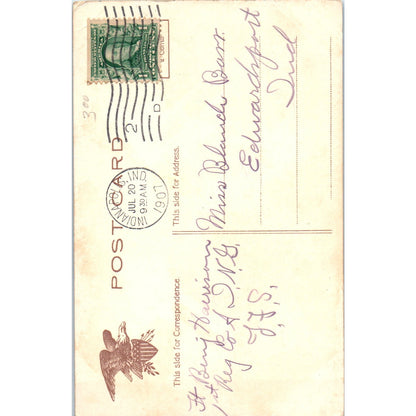 3 00
POST CARD
INDIANAPOLIS, IND.
JUL 20
9 30 AM
1907
2
D
This side for Correspondence.
This side for Address.
Ft Benj Harrison
1st Reg Co A I.N.G.
Miss Blanch Barr
Edwardsport
Ind